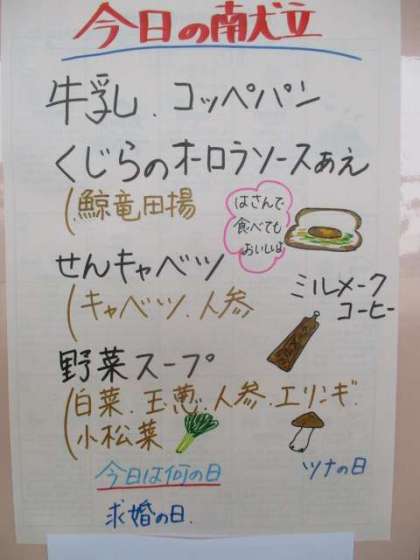 今日の献立
牛乳、コッペパン
くじらのオーロラソースあえ
(鯨竜田揚
はさんで
食べても
おいしいよ
せんキャベツ
(キャベツ、人参
ミルメーク
コーヒー
野菜スープ
(白菜、玉葱、人参、エリンギ、
小松菜
今日は何の日
ツナの日
求婚の日